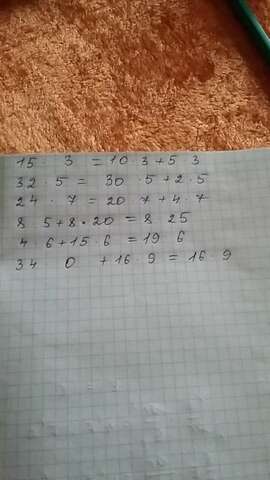 15 · 3 = 10 3 + 5 3
32 · 5 = 30 · 5 + 2 · 5
24 · 7 = 20 7 + 4 · 7
8 5 + 8 · 20 = 8 25
4 6 + 15 · 6 = 19 6
34 0 + 16 · 9 = 16 · 9